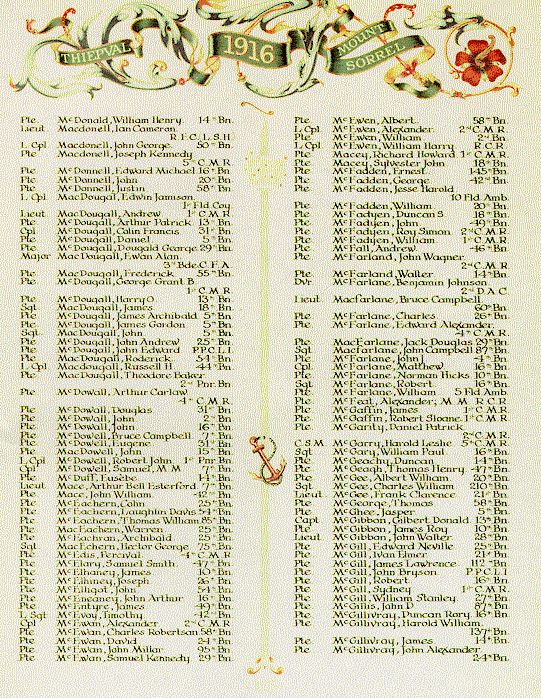 THIEPVAL
1916
MOUNT SORREL
Pte. McDonald, William Henry. 14th Bn.
Lieut. Macdonell, Ian Cameron.
R.F.C., L.S.H.
L. Cpl Macdonell, John George. 50th Bn.
Pte Macdonell, Joseph Kennedy
5th C.M.R.
Pte McDonnell, Edward Michael. 16th Bn.
Pte McDonnell, John 20th Bn.
Pte McDonnell, Justin 58th Bn.
L. Cpl MacDougal, Edwin Jamison.
1st Fld Coy.
Lieut MacDougall, Andrew 1st C.M.R.
Pte McDougall, Arthur Patrick. 13th Bn.
Cpl McDougall, Colin Francis 31st Bn.
Pte McDougall, Daniel 5th Bn.
Pte McDougall, Dougald George. 29th Bn.
Major MacDougall, Ewan Alan.
3rd Bde. C.F.A.
Pte MacDougall, Frederick 55th Bn.
Pte McDougall, George Grant B.
1st C.M.R.
Pte McDougall, Harry O. 13th Bn.
Sgt MacDougall, James 18th Bn.
Pte McDougall, James Archibald 5th Bn.
Pte McDougall, James Gordon 5th Bn.
Sgt MacDougall, John 5th Bn.
Pte McDougall, John Andrew 25th Bn.
Pte McDougall, John Edward P.P.C.L.I.
Pte MacDougall, Roderick. 54th Bn.
L. Cpl Macdougall, Russell H. 44th Bn.
Pte MacDougall, Theodore Baker
2nd Pnr. Bn.
Pte McDowall, Arthur Carlaw
4th C.M.R.
Pte McDowall, Douglas 31st Bn.
Pte McDowall, John 2nd Bn.
Pte McDowall, John 16th Bn.
Pte McDowell, Bruce Campbell. 7th Bn.
Pte McDowell, Eugene 31st Bn.
Pte MacDowell, John 15th Bn.
L. Cpl McDowell, Robert John 1st Pnr. Bn.
Cpl McDowell, Samuel, M.M. 7th Bn.
Pte McDuff, Eusèbe 14th Bn.
Lieut Mace, Arthur Bell Esterford 7th Bn.
Pte Mace, John William. 42nd Bn.
Pte McEachern, Colin 25th Bn.
Pte McEachern, Loughlin Davis 54th Bn.
Pte McEachern, Thomas William 85th Bn.
Pte MacEachern, Warren 25th Bn.
Pte MacEachran, Archibald 25th Bn.
Sgt MacEchern, Hector George 75th Bn.
Pte McEdis, Percival 4th C.M.R.
Pte McElary, Samuel Smith. 47th Bn.
Pte McElhaney, James 10th Bn.
Pte McElhiney, Joseph 26th Bn.
Pte McElligot, John 54th Bn.
Pte McEneaney, John Arthur 16th Bn.
Pte McEntyre, James 49th Bn.
L. Sgt McEvoy, Timothy 42nd Bn.
Cpl McEwan, Alexander. 2nd C.M.R.
Pte McEwan, Charles Robertson 58th Bn.
Pte McEwan, David 24th Bn.
Pte McEwan, John Millar 95th Bn.
Pte McEwan, Samuel Kennedy. 29th Bn.
Pte McEwen, Albert. 58th Bn.
L. Cpl McEwen, Alexander. 2nd C.M.R.
Pte McEwen, William 2nd Bn.
L. Cpl McEwen, William Harry R.C.R.
Pte Macey, Richard Howard. 1st C.M.R.
Pte Macey, Sylvester John 18th Bn.
Pte McFadden, Ernest. 145th Bn.
Pte McFadden, George 42nd Bn.
Pte McFadden, Jesse Harold
10 Fld. Amb.
Pte McFadden, William 20th Bn.
Pte McFadyen, Duncan S. 18th Bn.
Pte McFadyen, John 49th Bn.
Pte McFadyen, Roy Simon 2nd C.M.R.
Pte McFadyen, William 1st C.M.R.
Pte McFall, Andrew 46th Bn.
Pte McFarland, John Wagner
2nd C.M.R.
Pte McFarland, Walter 14th Bn.
Dvr McFarlane, Benjamin Johnson.
2nd D.A.C.
Lieut Macfarlane, Bruce Campbell.
60th Bn.
Pte McFarlane, Charles 26th Bn.
Pte McFarlane, Edward Alexander.
4th C.M.R.
Pte MacFarlane, Jack Douglas 29th Bn.
Sgt Macfarlane, John Campbell 87th Bn.
Pte McFarlane, John J. 4th Bn.
Cpl McFarlane, Matthew 16th Bn.
Pte McFarlane, Norman Hicks 10th Bn.
Sgt McFarlane, Robert 16th Bn.
Pte McFarlane, William 5 Fld. Amb.
Pte McFeat, Alexander, M.M. R.C.R.
Pte McGaffin, James 1st C.M.R.
Pte McGaffin, Robert Sloane. 1st C.M.R.
Pte McGarity, Daniel Patrick.
2nd C.M.R.
C.S.M. McGarry, Harold Leslie. 5th C.M.R.
Sgt McGary, William Paul 16th Bn.
Pte McGeachy, Duncan 14th Bn.
Pte McGeagh, Thomas Henry 47th Bn.
Pte McGee, Albert William 20th Bn.
Sgt McGee, Charles William 210th Bn.
Lieut McGee, Frank Clarence 21st Bn.
Pte McGeorge, Thomas 58th Bn.
Pte McGhee, Jasper 5th Bn.
Capt McGibbon, Gilbert Donald 13th Bn.
Pte McGibbon, James Roy 10th Bn.
Lieut McGibbon, John Walter 28th Bn.
Pte McGill, Edward Neville 25th Bn.
Pte McGill, Ivan Elmer 21st Bn.
Pte McGill, James Lawrence 112th Bn.
Pte McGill, John Bryson P.P.C.L.I.
Pte McGill, Robert 16th Bn.
Pte McGill, Sydney 1st C.M.R.
Pte McGill, William Stanley. 27th Bn.
Pte McGillis, John D. 87th Bn.
Pte McGillivray, Duncan Rory. 16th Bn.
Pte McGillivray, Harold William.
137th Bn.
Pte McGillivray, James 14th Bn.
Pte McGillivray, John Alexander
24th Bn.